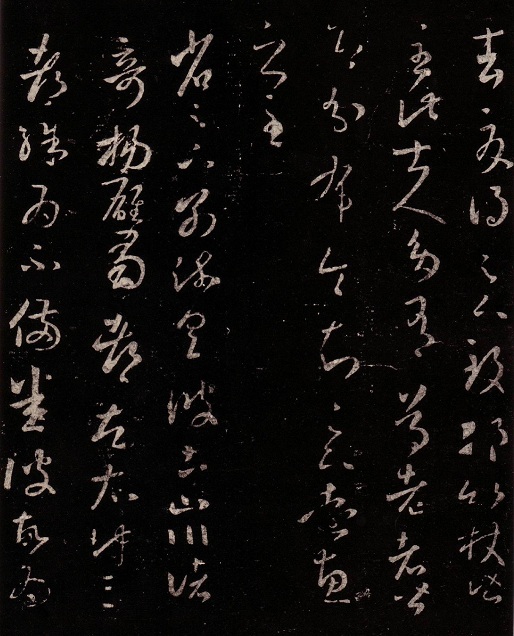 去夏得足下致邛竹杖皆
至此士人多有尊老者皆
即分布令知足下遠惠
之至
省足下別疏具彼土山川諸
奇揚雄蜀都左太沖三
都殊為不備悉彼故為